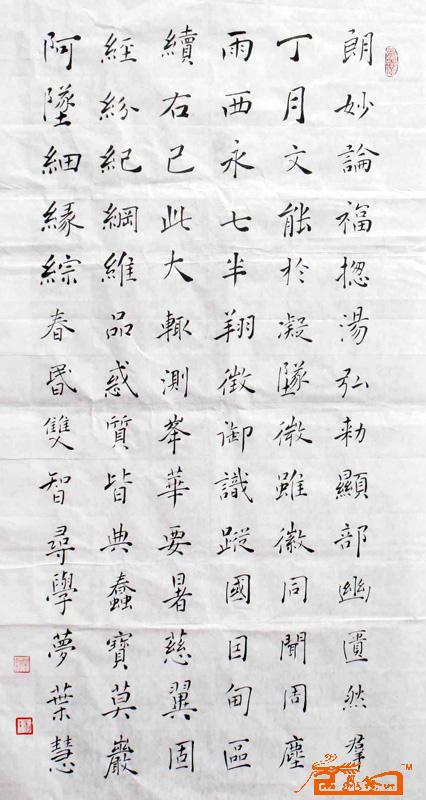 朗妙論福揔湯弘勅顯部幽匱然羣
丁月文能於凝墜微雖徽同聞周塵
雨西永七半翔徴御識蹤國因甸區
續右己此大輙測峯華要暑慈翼固
經紛紀綱維品惑質皆典蠢寶莫巖
阿墜細緣綜春昬雙智尋學夢葉慧